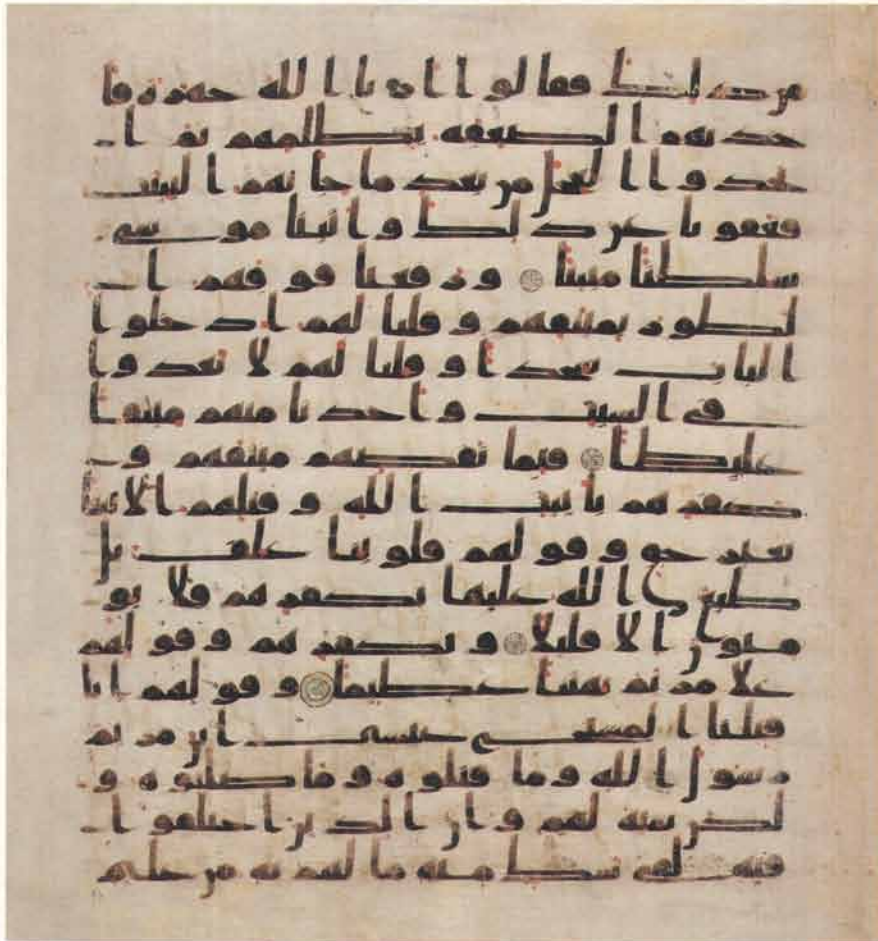 من ذلك فقالوا ارنا الله جهرة فا
خذتهم الصعقة بظلمهم ثم ا
تخذوا العجل من بعد ما جاتهم البينت
فعفونا عن ذلك واتينا موسى
سلطنا مبينا ورفعنا فوقهم ا
لطور بميثقهم وقلنا لهم ادخلوا
الباب سجدا وقلنا لهم لا تعدوا
في السبت واخذنا منهم ميثقا
غليظا فبما نقضهم ميثقهم و
كفرهم بايت الله وقتلهم الانبيا
بغير حق وقولهم قلوبنا غلف بل
طبع الله عليها بكفرهم فلا يو
منون الا قليلا وبكفرهم وقولهم
علا مريم بهتنا عظيما وقولهم انا
قتلنا المسيح عيسى ابن مريم
رسول الله وما قتلوه وما صلبوه و
لكن شبه لهم وان الذين اختلفوا
فيه لفي شك منه ما لهم به من علم